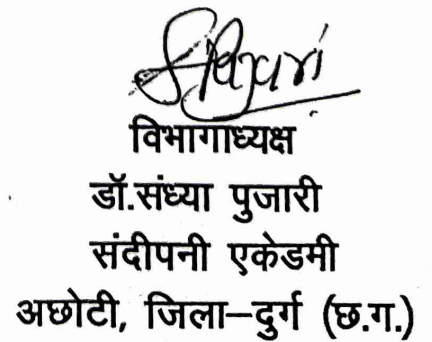 S Pujari
विभागाध्यक्ष
डॉ.संध्या पुजारी
संदीपनी एकेडमी
अछोटी, जिला–दुर्ग (छ.ग.)